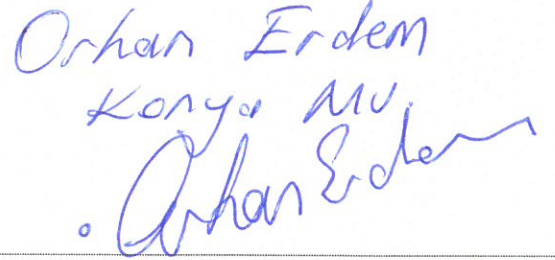 Orhan Erdem
Konya MV.
Orhan Erdem